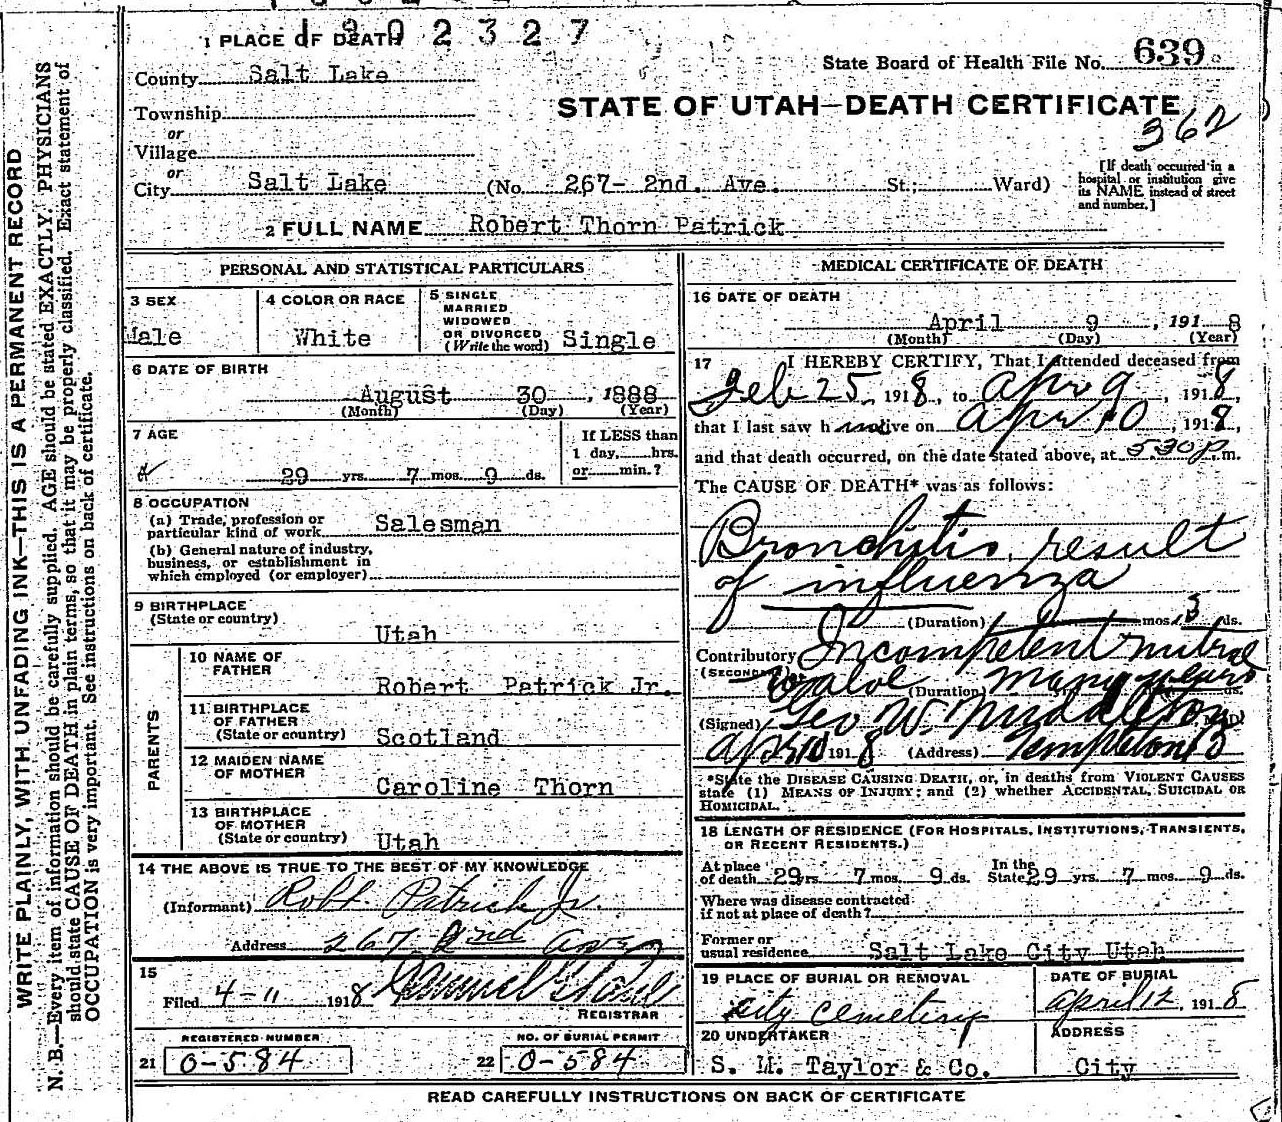 1 PLACE OF DEATH
1802327
County Salt Lake
State Board of Health File No. 639
STATE OF UTAH—DEATH CERTIFICATE
362
Township
or
Village
or
City Salt Lake (No. 267- 2nd. Ave. St.; Ward)
[If death occurred in a hospital or institution give its NAME instead of street and number.]
2 FULL NAME Robert Thorn Patrick
WRITE PLAINLY, WITH UNFADING INK—THIS IS A PERMANENT RECORD
N. B.—Every item of information should be carefully supplied. AGE should be stated EXACTLY. PHYSICIANS
should state CAUSE OF DEATH in plain terms, so that it may be properly classified. Exact statement of
OCCUPATION is very important. See instructions on back of certificate.
PERSONAL AND STATISTICAL PARTICULARS
3 SEX
Male
4 COLOR OR RACE
White
5 SINGLE
MARRIED
WIDOWED
OR DIVORCED
(Write the word) Single
6 DATE OF BIRTH
August 30, 1888
(Month) (Day) (Year)
7 AGE
29 yrs. 7 mos. 9 ds.
If LESS than
1 day, hrs.
or min.?
8 OCCUPATION
(a) Trade, profession or
particular kind of work Salesman
(b) General nature of industry,
business, or establishment in
which employed (or employer)
9 BIRTHPLACE
(State or country)
Utah
PARENTS
10 NAME OF
FATHER
Robert Patrick Jr.
11 BIRTHPLACE
OF FATHER
(State or country) Scotland
12 MAIDEN NAME
OF MOTHER
Caroline Thorn
13 BIRTHPLACE
OF MOTHER
(State or country) Utah
14 THE ABOVE IS TRUE TO THE BEST OF MY KNOWLEDGE
(Informant) Robt. Patrick Jr.
Address 267 2nd Ave
15
Filed 4-11 1918
REGISTRAR
REGISTERED NUMBER
21 0-584
NO. OF BURIAL PERMIT
22 0-584
MEDICAL CERTIFICATE OF DEATH
16 DATE OF DEATH
April 9, 1918
(Month) (Day) (Year)
17 I HEREBY CERTIFY, That I attended deceased from
Feb 25, 1918, to Apr 9, 1918,
that I last saw h im alive on Apr 10, 1918,
and that death occurred, on the date stated above, at 530 p.m.
The CAUSE OF DEATH* was as follows:
Bronchitis, result
of influenza
(Duration) mos. 3 ds.
Contributory Incompetent mitral
(SECONDARY) valve (Duration) many years ds.
(Signed) Geo W. Middleton M.D.
Apr 10 1918 (Address) Templeton B
*State the DISEASE CAUSING DEATH, or, in deaths from VIOLENT CAUSES
state (1) MEANS OF INJURY; and (2) whether ACCIDENTAL, SUICIDAL OR
HOMICIDAL.
18 LENGTH OF RESIDENCE (FOR HOSPITALS, INSTITUTIONS, TRANSIENTS,
OR RECENT RESIDENTS.)
At place
of death 29 yrs. 7 mos. 9 ds. In the State 29 yrs. 7 mos. 9 ds.
Where was disease contracted
if not at place of death?
Former or
usual residence Salt Lake City Utah
19 PLACE OF BURIAL OR REMOVAL
City Cemetery
DATE OF BURIAL
April 12, 1918
20 UNDERTAKER
S. M. Taylor & Co.
ADDRESS
City
READ CAREFULLY INSTRUCTIONS ON BACK OF CERTIFICATE